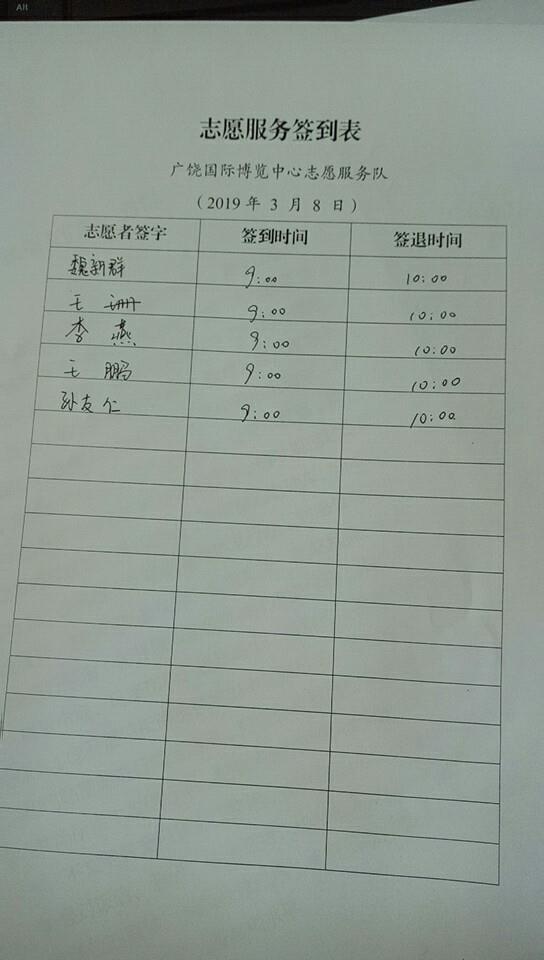 Alt
志愿服务签到表
广饶国际博览中心志愿服务队
（2019 年 3 月 8 日）
志愿者签字 签到时间 签退时间
魏新群 9:00 10:00
王 珊 9:00 10:00
李 燕 9:00 10:00
王 鹏 9:00 10:00
孙友仁 9:00 10:00